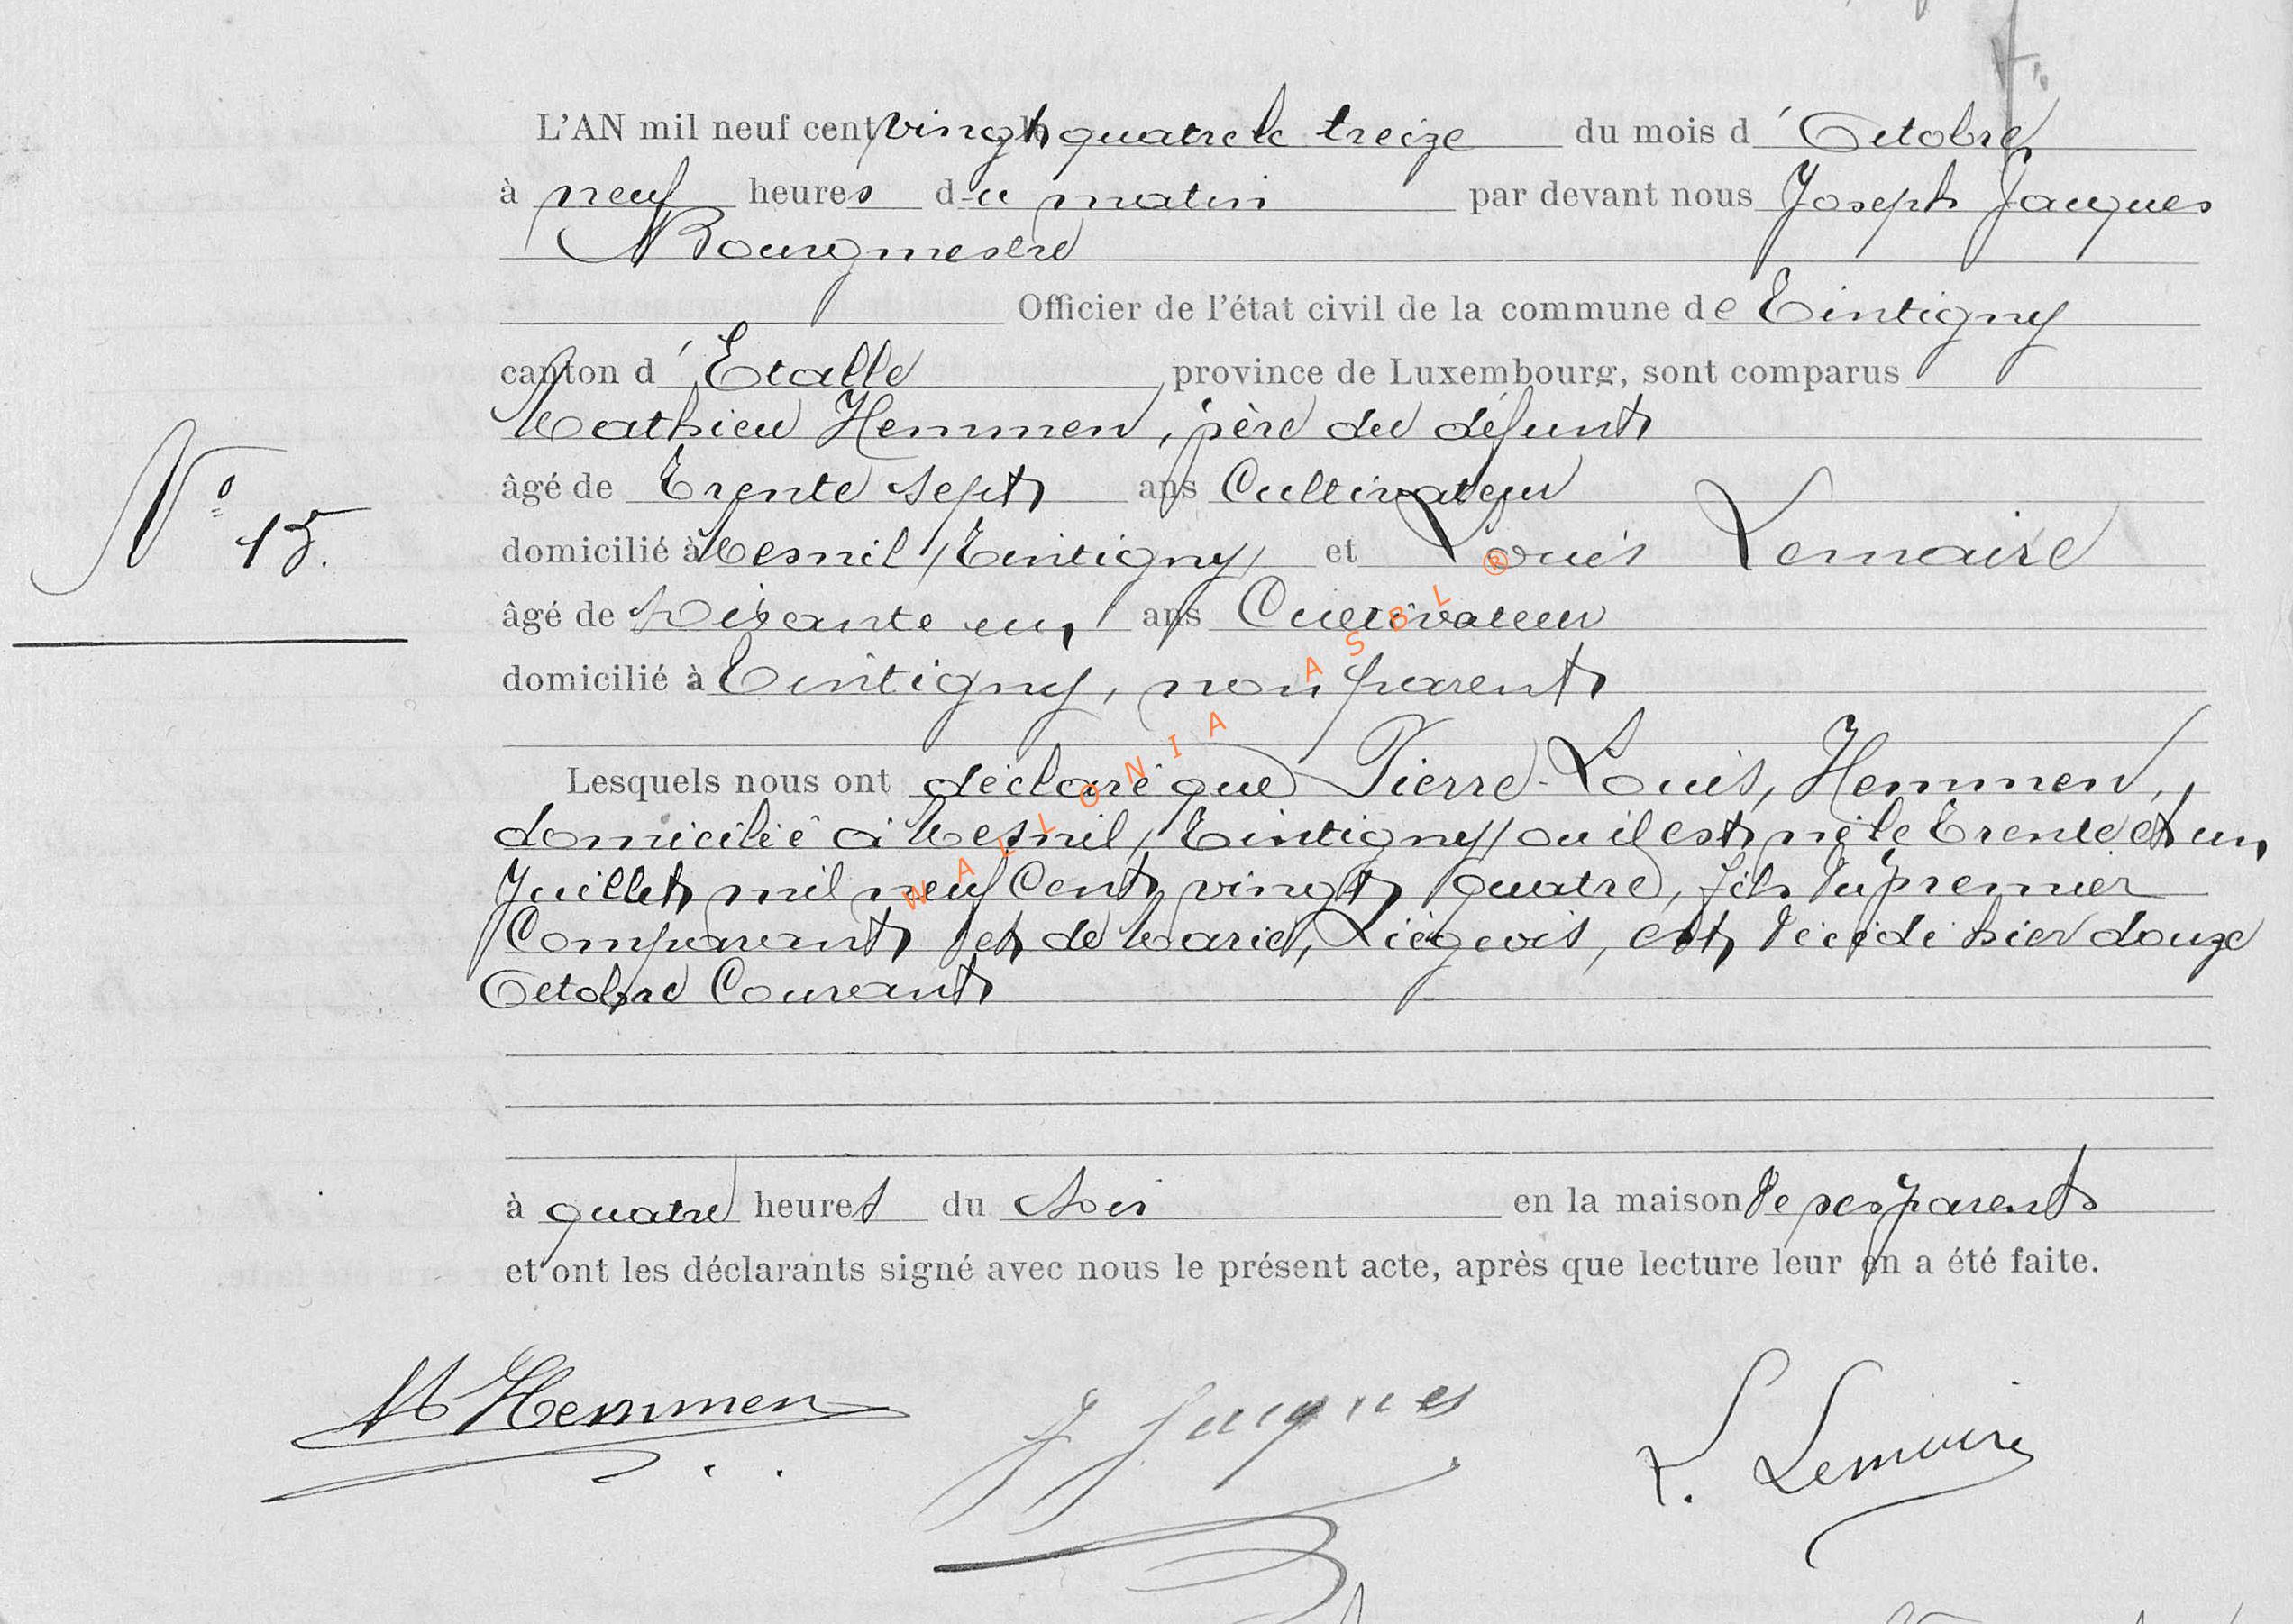 L'AN mil neuf cent vingt quatre le treize du mois d'Octobre
à neuf heures du matin par devant nous Joseph Jacques
Bourgmestre
Officier de l'état civil de la commune de Tintigny
canton d'Etalle province de Luxembourg, sont comparus
Mathieu Hemmen, père du défunt
âgé de Trente sept ans Cultivateur
N° 15.
domicilié à Mesnil (Tintigny) et Louis Lemaire
âgé de Soixante un ans Cultivateur
domicilié à Tintigny, non parent
Lesquels nous ont déclaré que Pierre-Louis, Hemmen,
domicilié à Mesnil (Tintigny) ou il est né le Trente et un
Juillet mil neuf Cent vingt quatre, fils du premier
Comparant et de Marie, Liégeois, est décédé hier douze
Octobre Courant
à quatre heures du Soir en la maison de ses parents
et ont les déclarants signé avec nous le présent acte, après que lecture leur en a été faite.
M Hemmen J Jacques L. Lemaire
WALLONIA ASBL ®